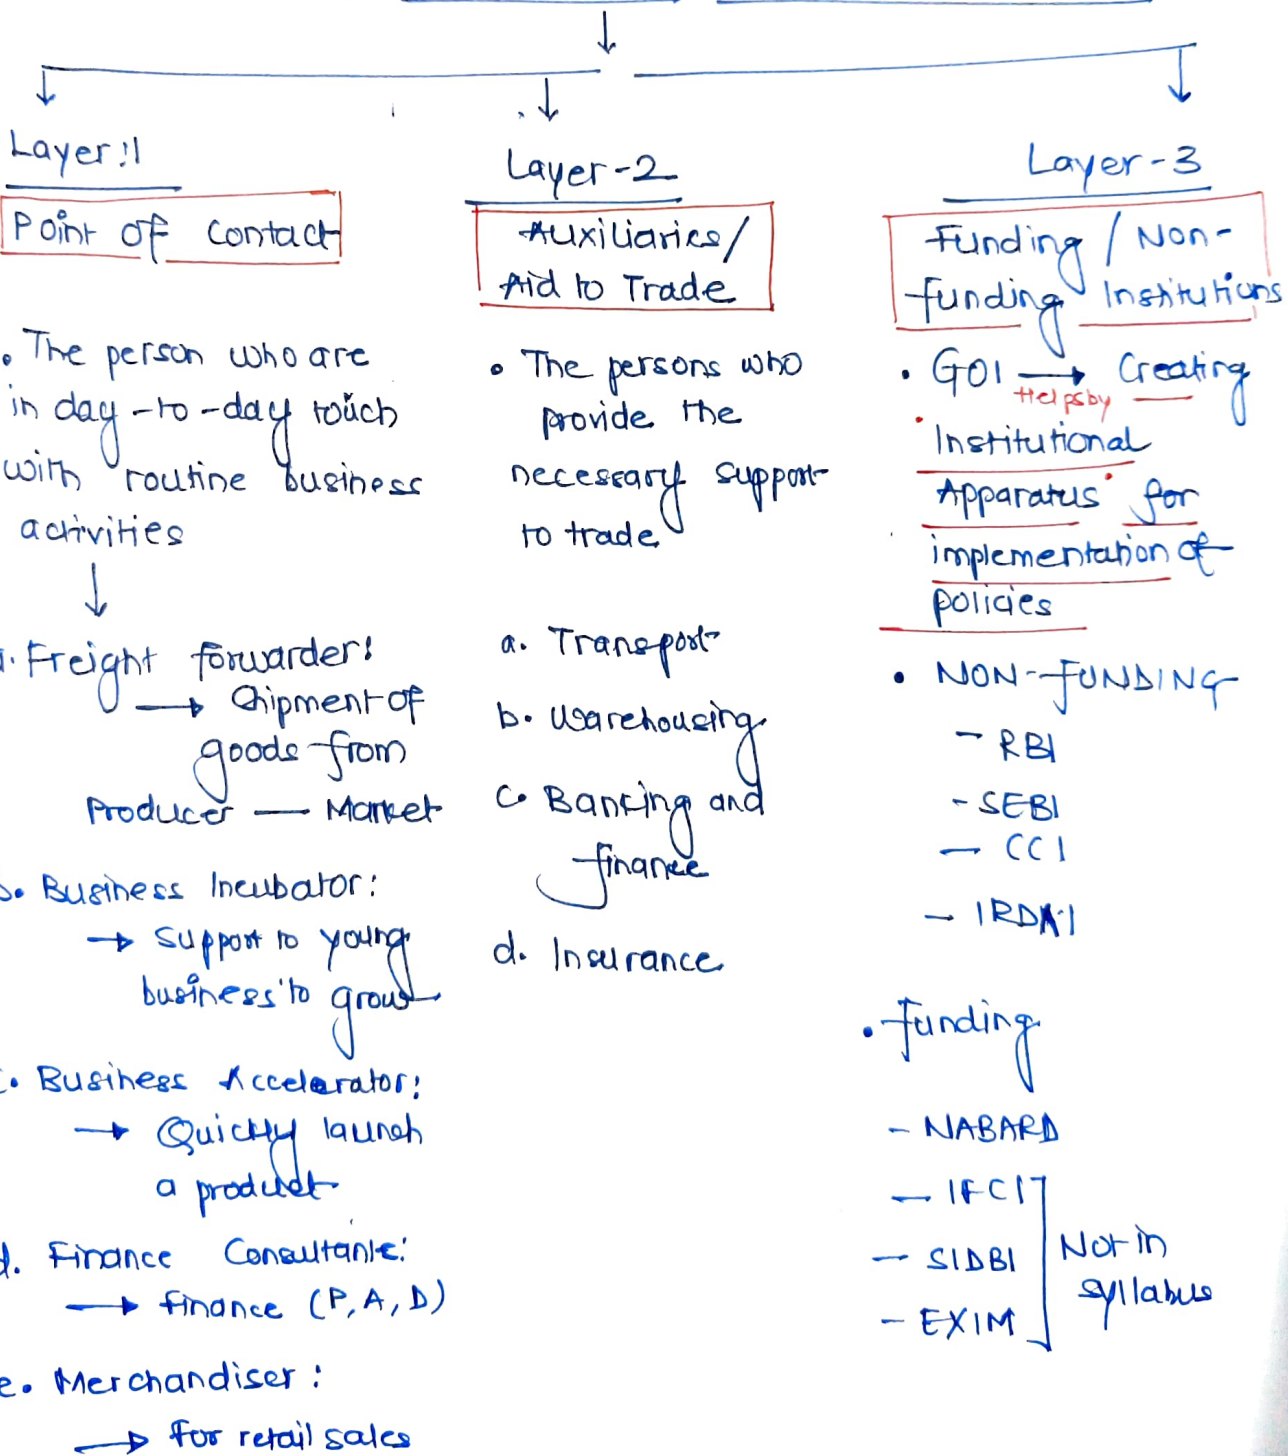 Layer:1
Point of Contact
• The person who are
in day-to-day touch
with routine business
activities
Freight forwarder:
→ Chipment of
goods from
Producer — Market
b. Business Incubator:
→ support to young
business to grow
c. Business Accelerator:
→ Quickly launch
a product
d. Finance Consultants:
→ finance (P, A, D)
e. Merchandiser:
→ for retail sales
Layer-2
Auxiliaries/
Aid to Trade
• The persons who
provide the
necessary support
to trade
a. Transport
b. Warehousing
c. Banking and
finance
d. Insurance
Layer-3
Funding / Non-
funding Institutions
• GOI → Creating
Helps by
Institutional
Apparatus for
implementation of
policies
• NON-FUNDING
- RBI
- SEBI
- CCI
- IRDAI
• funding
- NABARD
- IFCI
- SIDBI
- EXIM
Not in
syllabus